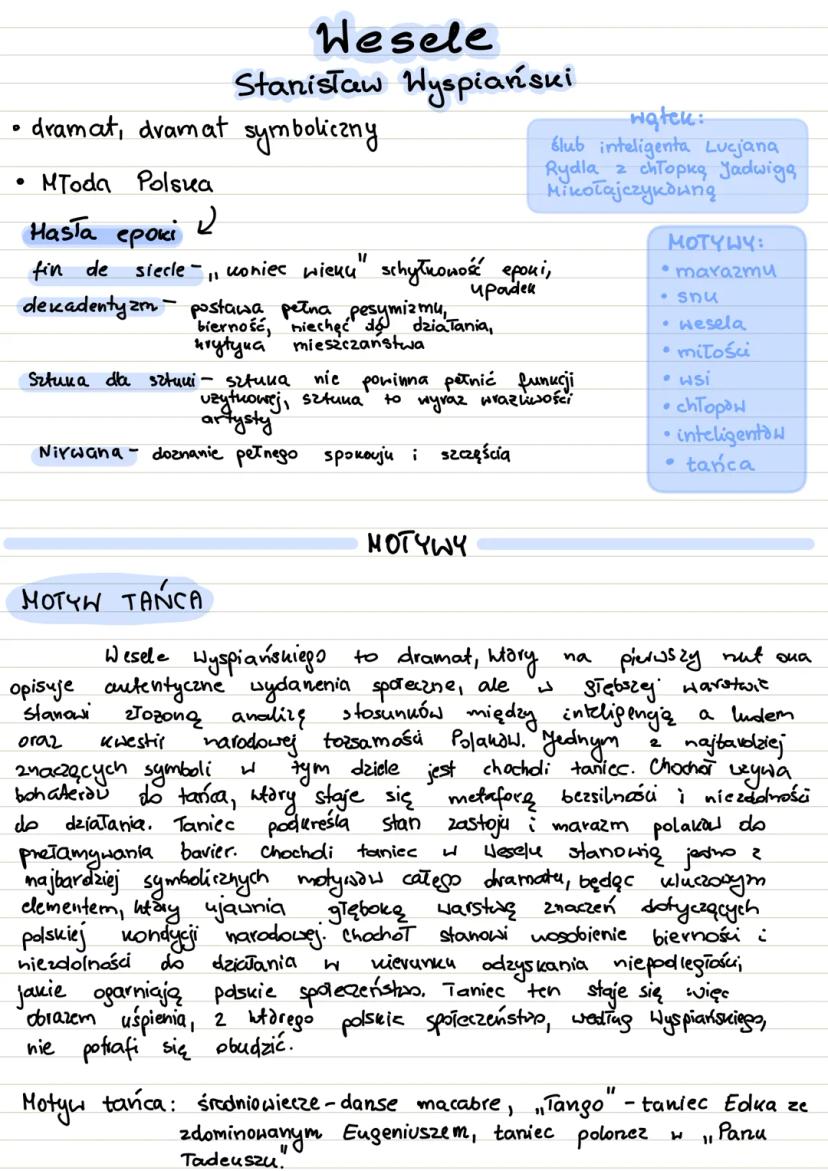 Wesele
Stanisław Wyspiański
• dramat, dramat symboliczny
• Młoda Polska
wątek:
ślub inteligenta Lucjana
Rydla z chłopką Jadwigą
Mikołajczykówną
Hasła epoki
fin de siecle - „koniec wieku" schyłkowość epoki,
upadek
dekadentyzm - postawa pełna pesymizmu,
bierność, niechęć do działania,
krytyka mieszczaństwa
Sztuka dla sztuki - sztuka nie powinna pełnić funkcji
użytkowej, sztuka to wyraz wrażliwości
artysty
Nirwana - doznanie pełnego spokoju i szczęścia
MOTYWY:
• marazmu
• snu
• wesela
• miłości
• wsi
• chłopów
• inteligentów
• tańca
MOTYWY
MOTYW TAŃCA
Wesele Wyspiańskiego to dramat, który na pierwszy rzut oka
opisuje autentyczne wydarzenia społeczne, ale w głębszej warstwie
stanowi złożoną analizę stosunków między inteligencją a ludem
oraz kwestii narodowej tożsamości Polaków. Jednym z najbardziej
znaczących symboli w tym dziele jest chocholi taniec. Chochoł wzywa
bohaterów do tańca, który staje się metaforą bezsilności i niezdolności
do działania. Taniec podkreśla stan zastoju i marazm polaków do
przełamywania barier. Chocholi taniec w Weselu stanowią jedno z
najbardziej symbolicznych motywów całego dramatu, będąc kluczowym
elementem, który ujawnia głęboką warstwę znaczeń dotyczących
polskiej kondycji narodowej. Chochoł stanowi uosobienie bierności i
niezdolności do działania w kierunku odzyskania niepodległości,
jakie ogarniają polskie społeczeństwo. Taniec ten staje się więc
obrazem uśpienia, z którego polskie społeczeństwo, według Wyspiańskiego,
nie potrafi się obudzić.
Motyw tańca: średniowiecze - danse macabre, „Tango" - taniec Edka ze
zdominowanym Eugeniuszem, taniec polonez w „Panu
Tadeuszu"